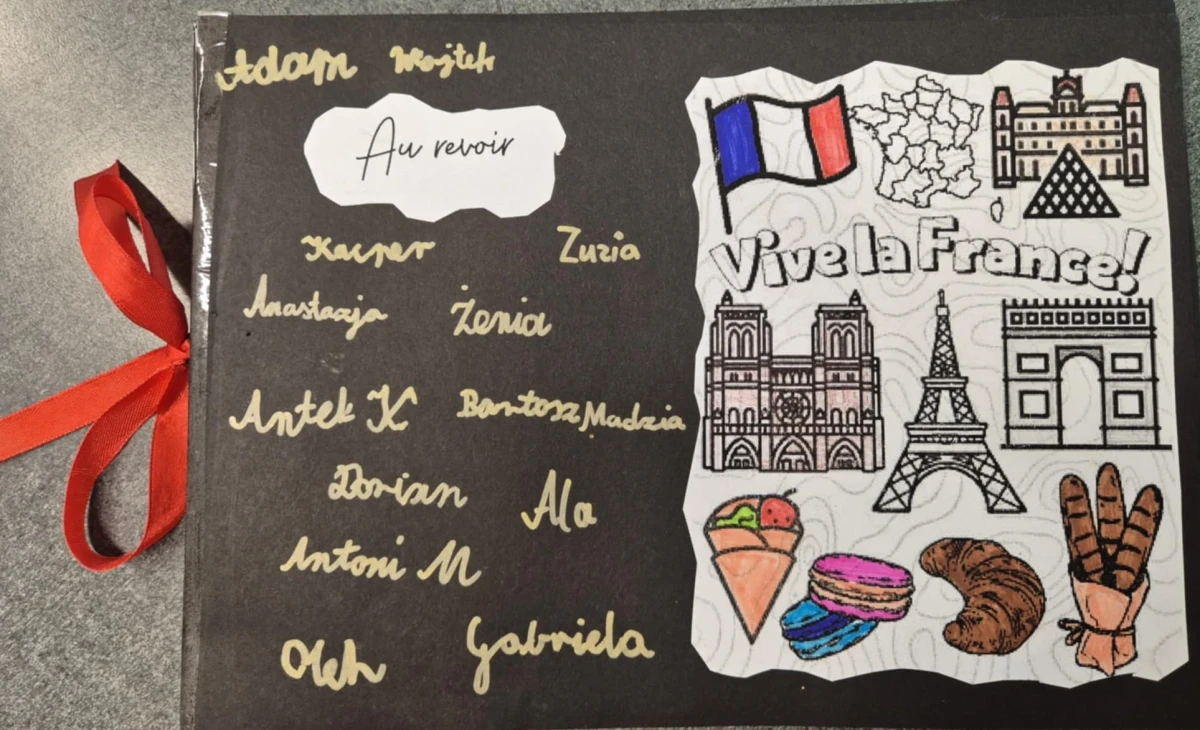 Adam Wojtek
Au revoir
Kacper Zuzia
Anastazja Żenia
Antek K Bartosz Madzia
Dorian Ala
Antoni M
Oleh Gabriela
Vive la France!